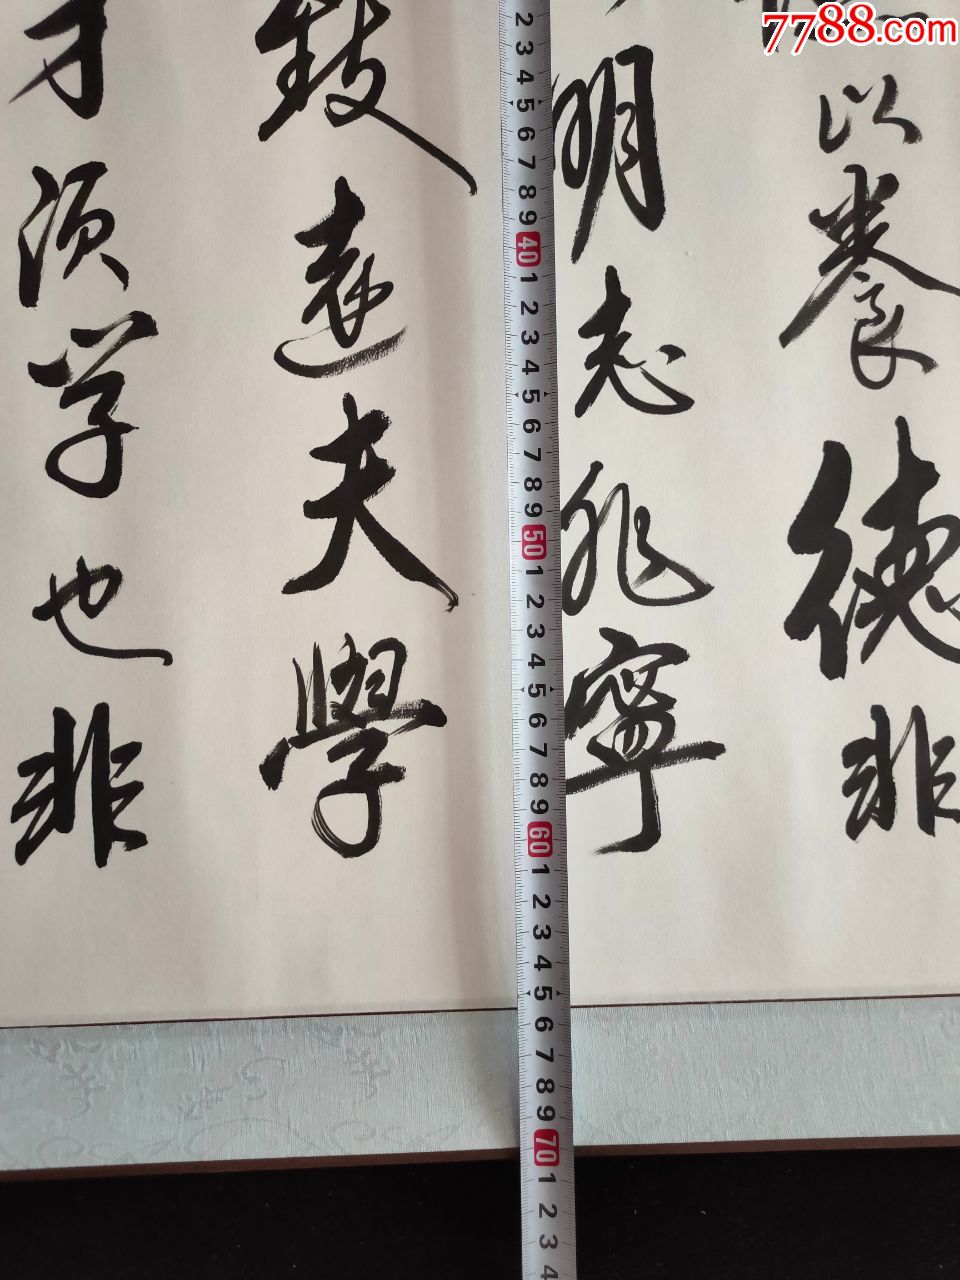 7788.com
以養德非
明志非寧
致遠夫學
才须学也非
2 3 4 5 6 7 8 9 40 1 2 3 4 5 6 7 8 9 50 1 2 3 4 5 6 7 8 9 60 1 2 3 4 5 6 7 8 9 70 1 2 3 4